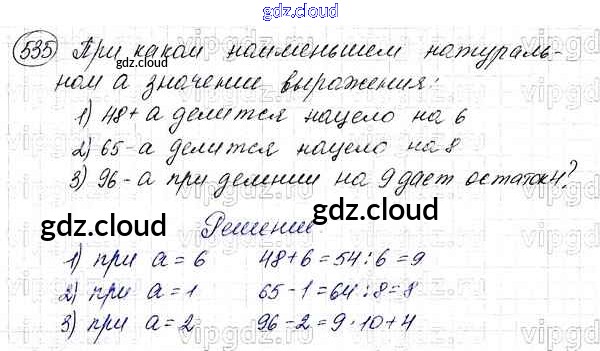 gdz.cloud
535 При каком наименьшем натураль-
ном а значение выражения:
gdz.cloud
1) 48+а делится нацело на 6
2) 65-а делится нацело на 8
3) 96-а при делении на 9 дает остаток 4?
gdz.cloud gdz.cloud
Решение
1) при а = 6 48+6=54:6=9
2) при а = 1 65-1=64:8=8
3) при а = 2 96-2=9·10+4
gdz.cloud gdz.cloud